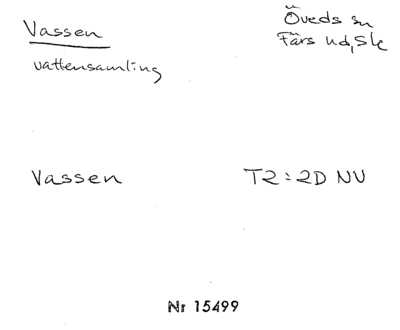 Vassen
Öveds sn
Färs hd, Sk
vattensamling
Vassen
T2:2D NV
Nr 15499